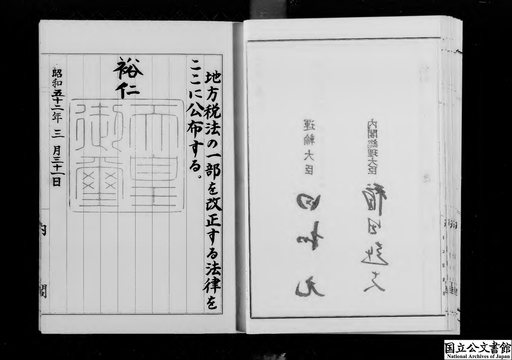 内閣総理大臣
福田赳夫
運輸大臣
田村元
地方税法の一部を改正する法律を
ここに公布する。
裕仁
天皇御璽
昭和五十二年三月三十一日
内閣
国立公文書館
National Archives of Japan